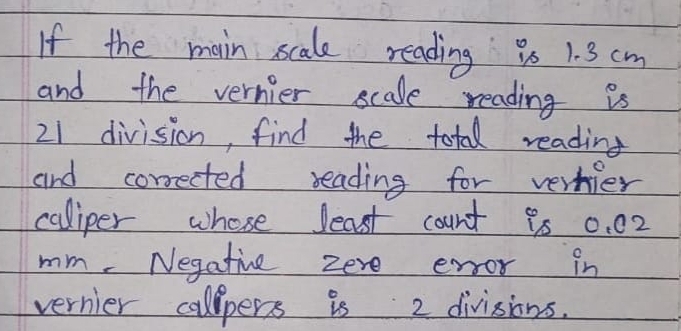 If the main scale reading is 1.3 cm
and the vernier scale reading is
21 division, find the total reading
and corrected reading for vernier
caliper whose least count is 0.02
mm. Negative zero error in
vernier callipers is 2 divisions.